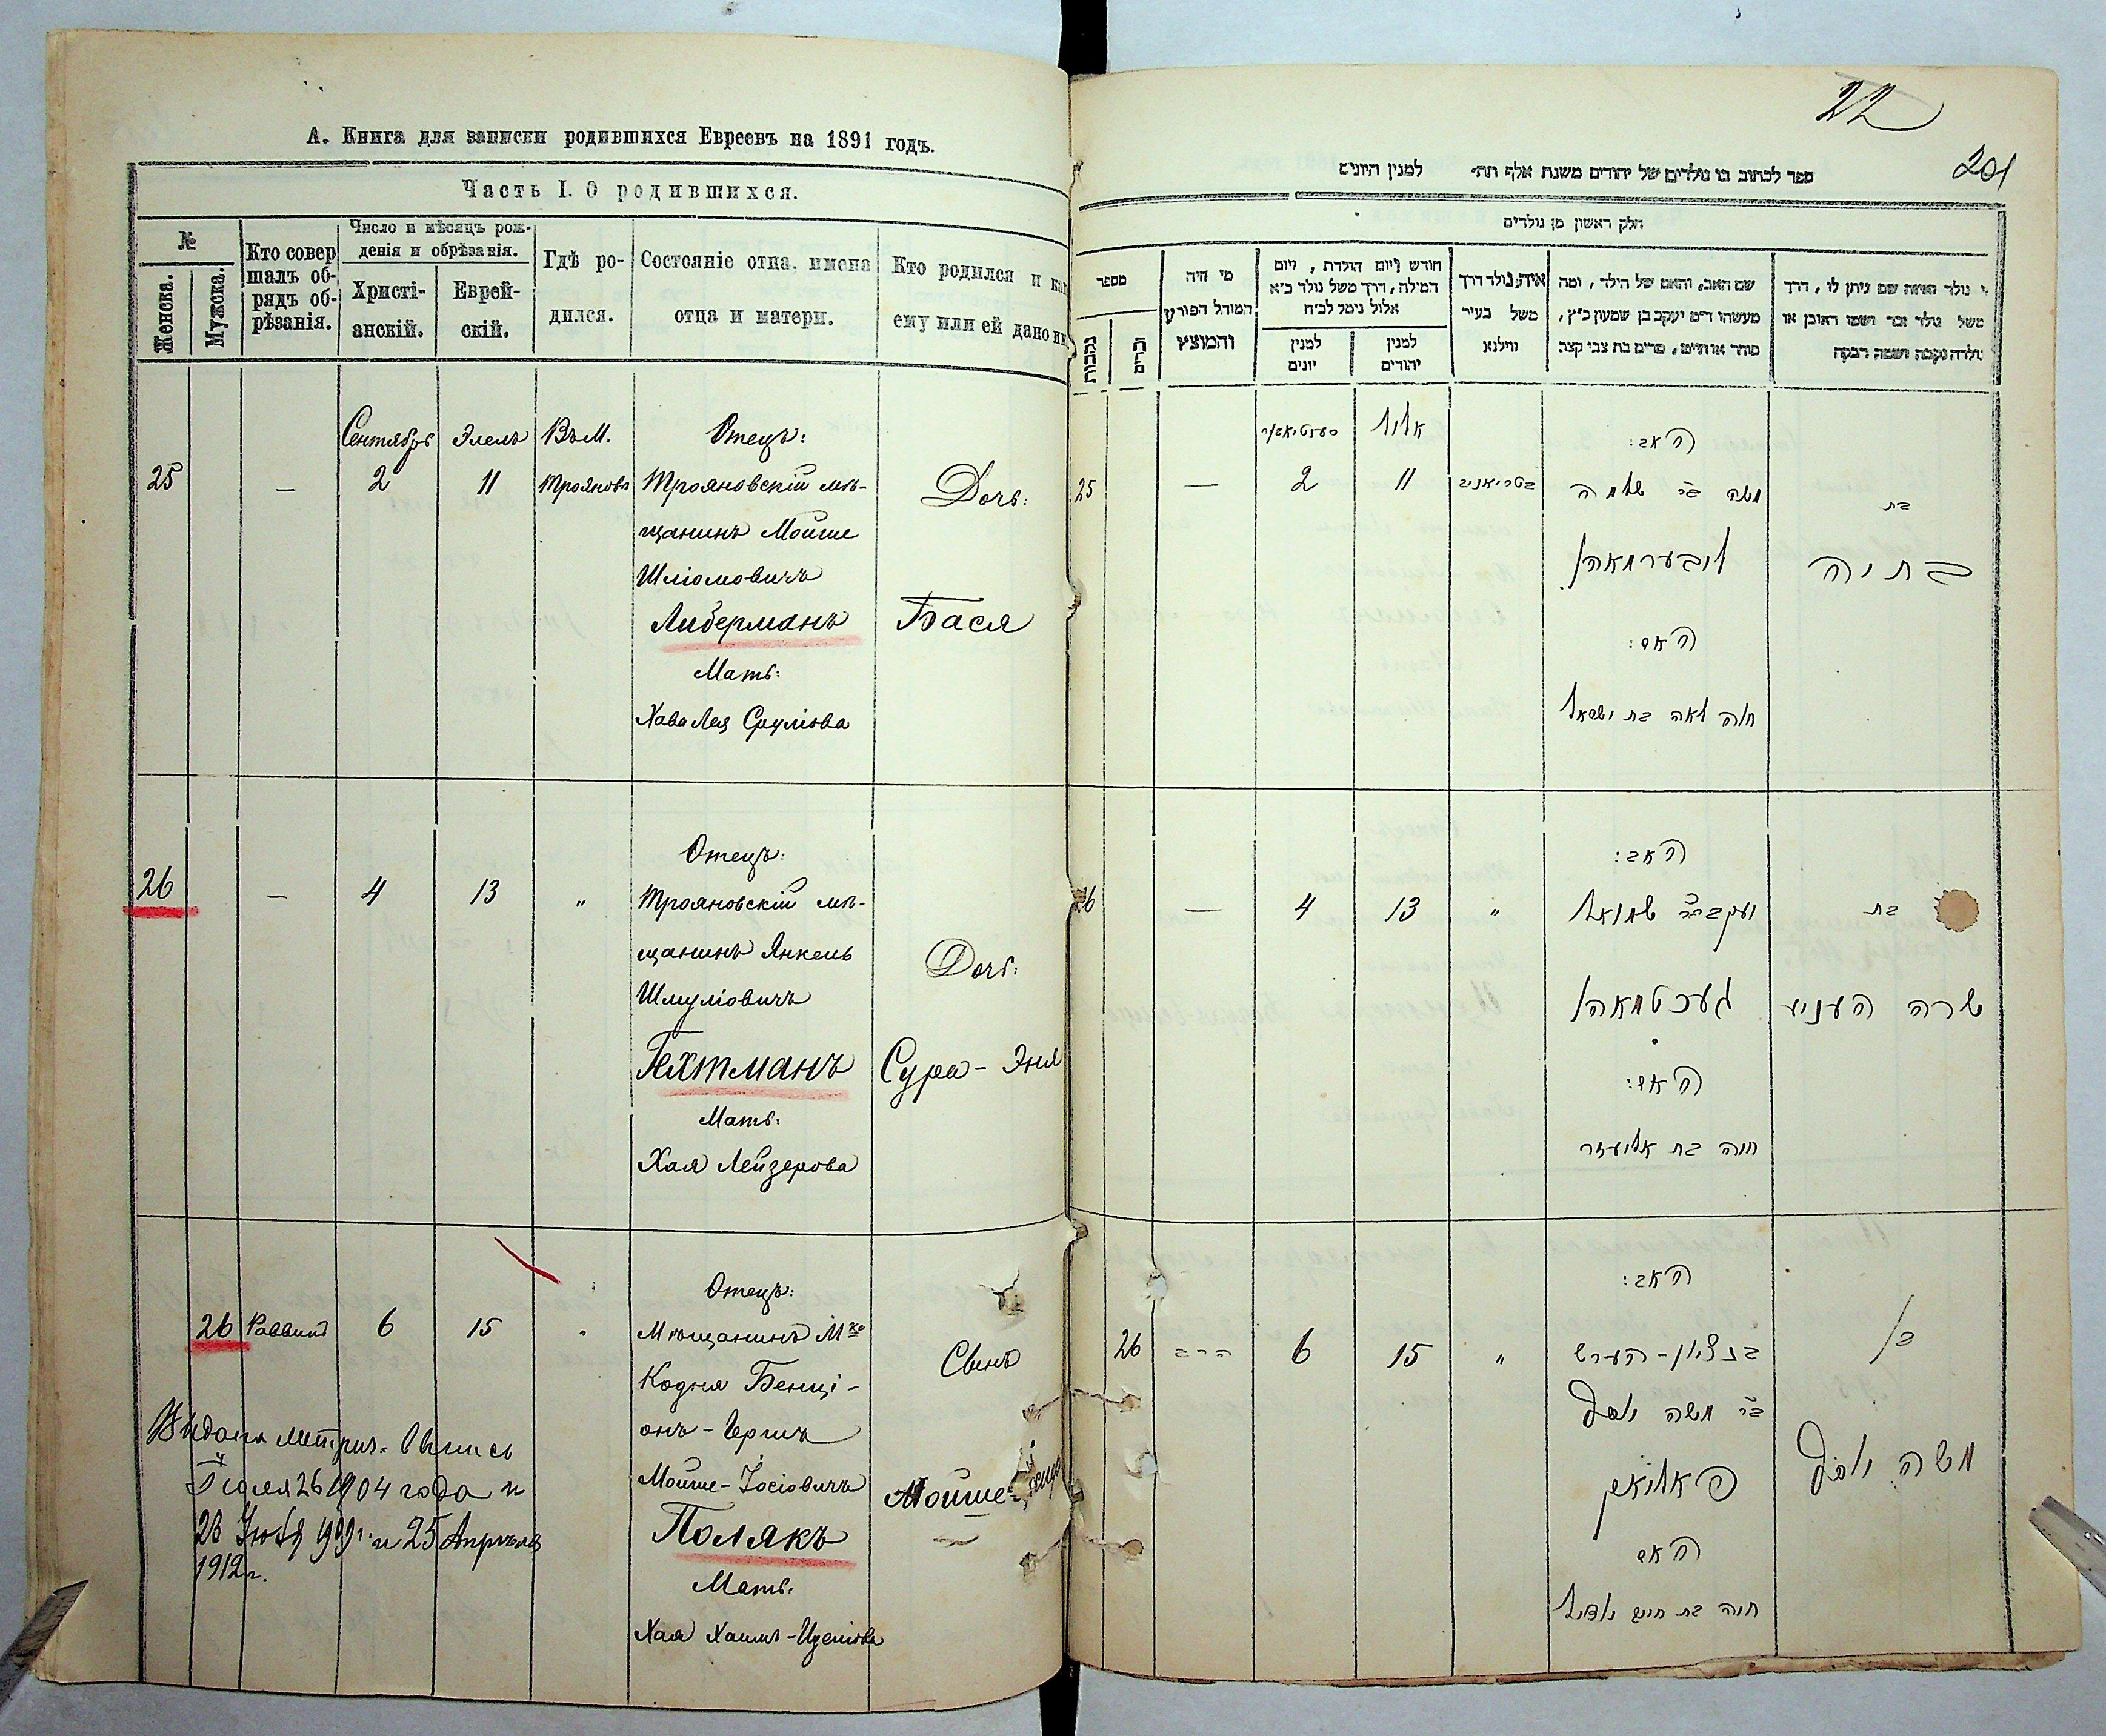 А. Книга для записки родившихся Евреевъ на 1891 годъ.
Часть I. О родившихся.
№
Женска.
Мужска.
Кто совер
шалъ об-
рядъ об-
рѣзанія.
Число и мѣсяцъ рож-
денія и обрѣзанія.
Христі-
анскій.
Еврей-
скій.
Гдѣ ро-
дился.
Состояніе отца, имена
отца и матери.
Кто родился и как
ему или ей дано им
Сентябрь Элелъ ВъМ. Отецъ:
25 — 2 11 Трояновъ Трояновскій мѣ-
щанинъ Мойше
Шліомовичъ
Либерманъ
Мать:
Хава Лея Сруліова
Дочь:
Бася
Отецъ:
26 — 4 13 " Трояновскій мѣ-
щанинъ Янкель
Шмуліовичъ
Гехтманъ
Мать:
Хая Лейзерова
Дочь:
Сура - Эня
Отецъ:
26 Раввинъ 6 15 " Мѣщанинъ Мка
Кодня Бенці-
онъ - Гершъ
Мойше - Іосіовичъ
Полякъ
Мать:
Хая Хаимъ -
Сынъ
Мойше
Выдана метрич. Выпись
26 1904 года и
23 и 25 Апрѣля
1912 г.
22
201
ספר לכתוב בו נולדים של יהודים משנת אלף תת־ למנין היונים
חלק ראשון מן נולדים
מספר
נקבות
זכרים
מי היה
המוהל הפורע
והמוצץ
חורש ויום הולדת, ויום
המילה, דרך משל נולד כ״א
אלול נימל לכ״ח
למנין
יונים
למנין
יהודים
איה נולד דרך
משל בעיר
ווילנא
שם האב, והאם של הילד, ומה
מעשהו ד״מ יעקב בן שמעון כ״ץ,
סוחר או חייט, מרים בת צבי קצב
י נולד ואיזה שם ניתן לו, דרך
משל נולד זכר ושמו ראובן או
נולדה נקבה ושמה רבקה
אלול
האב:
25 — 2 11 משה ב״ר שלמה
ליבערמאהן
האם:
חוה לאה בת ישראל
בת
בתיה
האב:
26 — 4 13 " יעקב ב״ר שמואל
געכטמאהן
האם:
חיה בת אליעזר
בת
שרה העניע
האב:
26 הרב 6 15 " בנציון - הערש
ב״ר משה יוסף
פאליאק
האם
חיה בת חיים
בן
משה יוסף